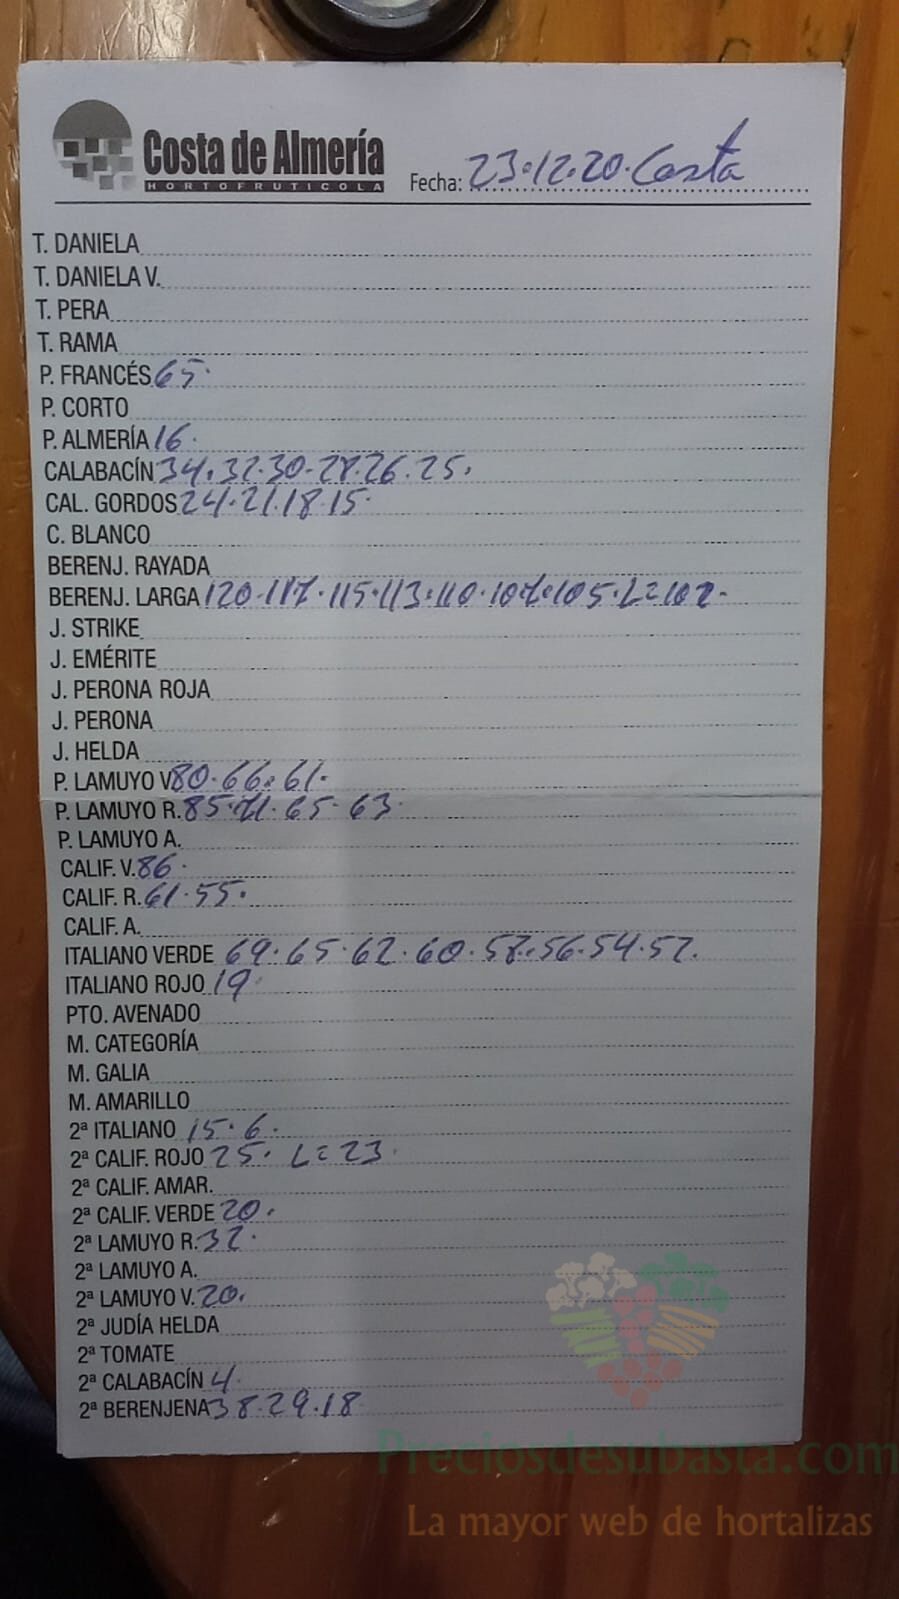 Costa de Almería
HORTOFRUTICOLA
Fecha: 23.12.20. Costa
T. DANIELA
T. DANIELA V.
T. PERA
T. RAMA
P. FRANCÉS 65.
P. CORTO
P. ALMERÍA 16.
CALABACÍN 34.32.30.28.26.25.
CAL. GORDOS 24.21.18.15.
C. BLANCO
BERENJ. RAYADA
BERENJ. LARGA 120.117.115.113.110.107.105.L=102-
J. STRIKE
J. EMÉRITE
J. PERONA ROJA
J. PERONA
J. HELDA
P. LAMUYO V 80.66.61.
P. LAMUYO R. 85.71.65.63.
P. LAMUYO A.
CALIF. V. 86.
CALIF. R. 61.55.
CALIF. A.
ITALIANO VERDE 69.65.62.60.58.56.54.52.
ITALIANO ROJO 19.
PTO. AVENADO
M. CATEGORÍA
M. GALIA
M. AMARILLO
2ª ITALIANO 15.6.
2ª CALIF. ROJO 25. L=23.
2ª CALIF. AMAR.
2ª CALIF. VERDE 20.
2ª LAMUYO R. 32.
2ª LAMUYO A.
2ª LAMUYO V. 20.
2ª JUDÍA HELDA
2ª TOMATE
2ª CALABACÍN 4.
2ª BERENJENA 38.29.18
Preciosdesubasta.com
La mayor web de hortalizas